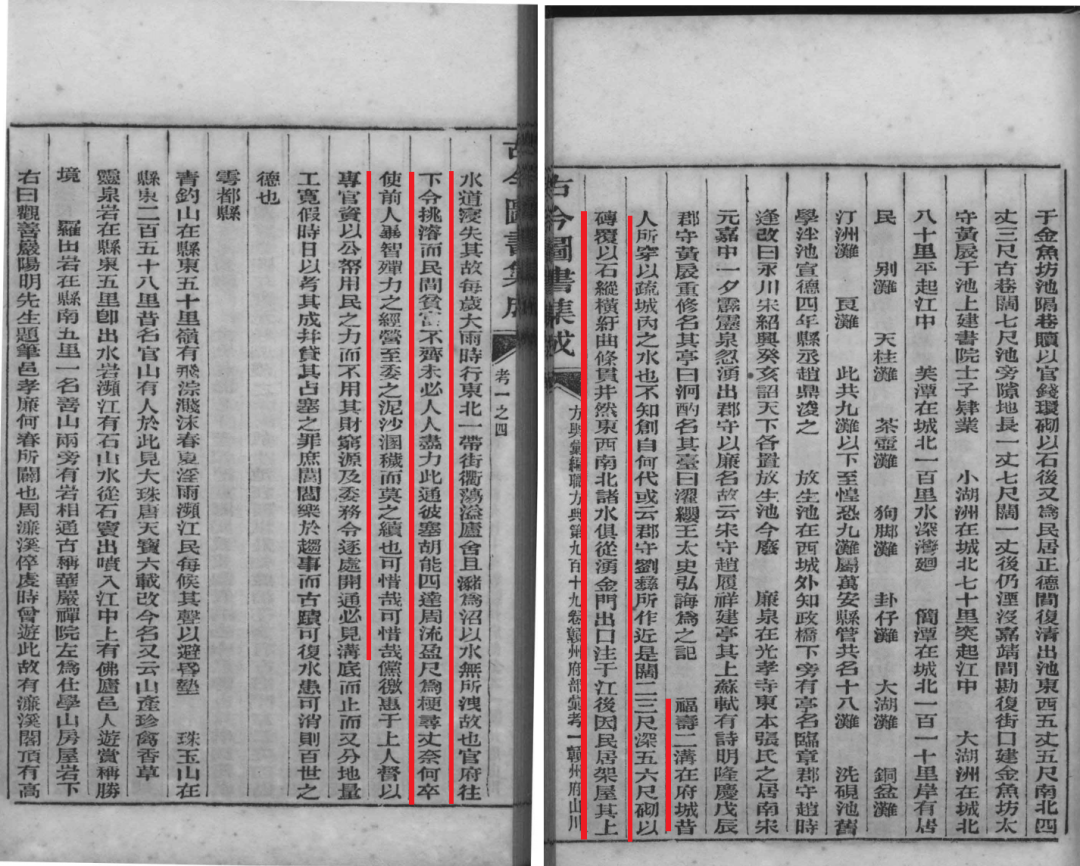 于金魚坊池隔巷贖以官錢環砌以石後又為民居正德間復清出池東西五丈五尺南北四
丈三尺古巷闊七尺池旁隙地長一丈七尺闊一丈後仍湮沒嘉靖間勘復街口建金魚坊太
守黃扆于池上建書院士子肄業 小湖洲在城北七十里突起江中 大湖洲在城北
八十里平起江中 芙潭在城北一百里水深灣廻 簡潭在城北一百一十里岸有居
民 別灘 天柱灘 茶壺灘 狗脚灘 卦仔灘 大湖灘 銅盆灘
汀洲灘 艮灘 此共九灘以下至惶恐九灘屬萬安縣管共名十八灘 洗硯池舊
學泮池宣德四年縣丞趙鼎浚之 放生池在西城外知政橋下旁有亭名臨章郡守趙時
逢改曰永川宋紹興癸亥詔天下各置放生池今廢 廉泉在光孝寺東本張氏之居南宋
元嘉中一夕霹靂泉忽湧出郡守以廉名故云宋守趙履祥建亭其上蘇軾有詩明隆慶戊辰
郡守黃扆重修名其亭曰泂酌名其臺曰濯纓王太史弘誨為之記 福壽二溝在府城昔
人所穿以疏城內之水也不知創自何代或云郡守劉彝所作近是闊二三尺深五六尺砌以
磚覆以石縱橫紆曲條貫井然東西南北諸水俱從湧金門出口注于江後因民居架屋其上
古今圖書集成 方輿彙編職方典第九百十九卷贛州府部彙考一贛州府山川
古今圖書集成 考一之四
水道寖失其故每歲大雨時行東北一帶街衢蕩溢廬舍且瀦為沼以水無所洩故也官府往
下令挑濬而民間貧富不齊未必人人盡力此通彼塞胡能四達周流盈尺為梗尋丈奈何卒
使前人畢智殫力之經營至委之泥沙溷穢而莫之續也可惜哉可惜哉儻徼惠于上人督以
專官資以公帑用民之力而不用其財窮源及委務令逐處開通必見溝底而止而又分地量
工寬假時日以考其成并貸其占塞之罪庶閭閻樂於趨事而古蹟可復水患可消則百世之
德也
雩都縣
青釣山在縣東五十里嶺有飛淙濺沫春夏淫雨瀕江民每候其聲以避昏墊 珠玉山在
縣東二百五十八里昔名官山有人於此見大珠唐天寶六載改今名又云山產珍禽香草
靈泉岩在縣東五里卽出水岩瀕江有石山水從石竇出噴入江中上有佛廬邑人遊賞稱勝
境 羅田岩在縣南五里一名善山兩旁有岩相通古稱華嚴禪院左為仕學山房屋岩下
右曰觀善巖陽明先生題筆邑孝廉何春所闢也周濂溪倅虔時曾遊此故有濂溪閣頂有高